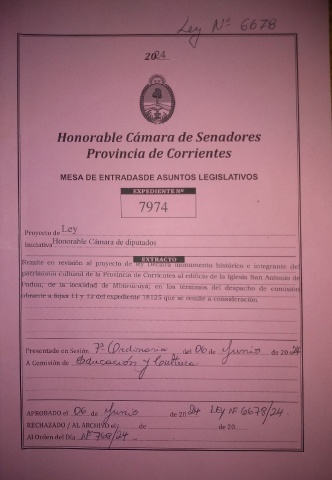 Ley Nº 6678
2024
Honorable Cámara de Senadores
Provincia de Corrientes
MESA DE ENTRADASDE ASUNTOS LEGISLATIVOS
EXPEDIENTE Nº
7974
Proyecto de Ley
Iniciativa Honorable Cámara de diputados
EXTRACTO
Remite en revisión al proyecto de ley Declara monumento histórico e integrante del
patrimonio cultural de la Provincia de Corrientes al edificio de la Iglesia San Antonio de
Padua, de la localidad de Mburucuyá; en los términos del despacho de comisión
obrante a fojas 11 y 12 del expediente 18125 que se remite a consideración.
Presentado en Sesión 7º Ordinaria del 06 de Junio de 2024
A Comisión de Educación y Cultura
APROBADO el 06 de Junio de 2024 LEY Nº 6678/24.
RECHAZADO / AL ARCHIVO el de de 20
Al Orden del Día Nº 768/24.